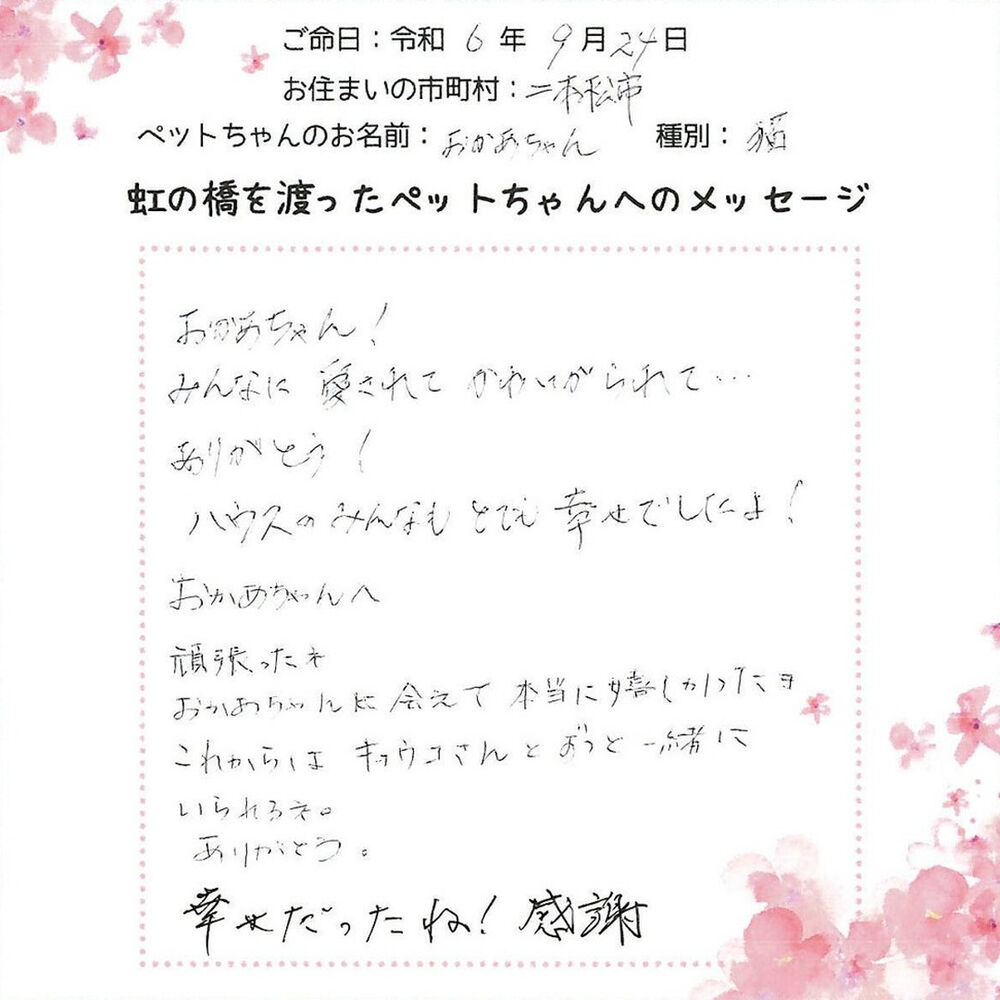 ご命日：令和 6 年 9 月 24 日
お住まいの市町村：二本松市
ペットちゃんのお名前：おかあちゃん 種別：猫
虹の橋を渡ったペットちゃんへのメッセージ
おかあちゃん！
みんなに 愛されて かわいがられて…
ありがとう！
ハウスのみんなも とても 幸せでしたよ！
おかあちゃんへ
頑張ったネ
おかあちゃんに 会えて 本当に嬉しかったヨ
これからは キョウコさんと ずっと 一緒に
いられるネ。
ありがとう。
幸せだったね！ 感謝